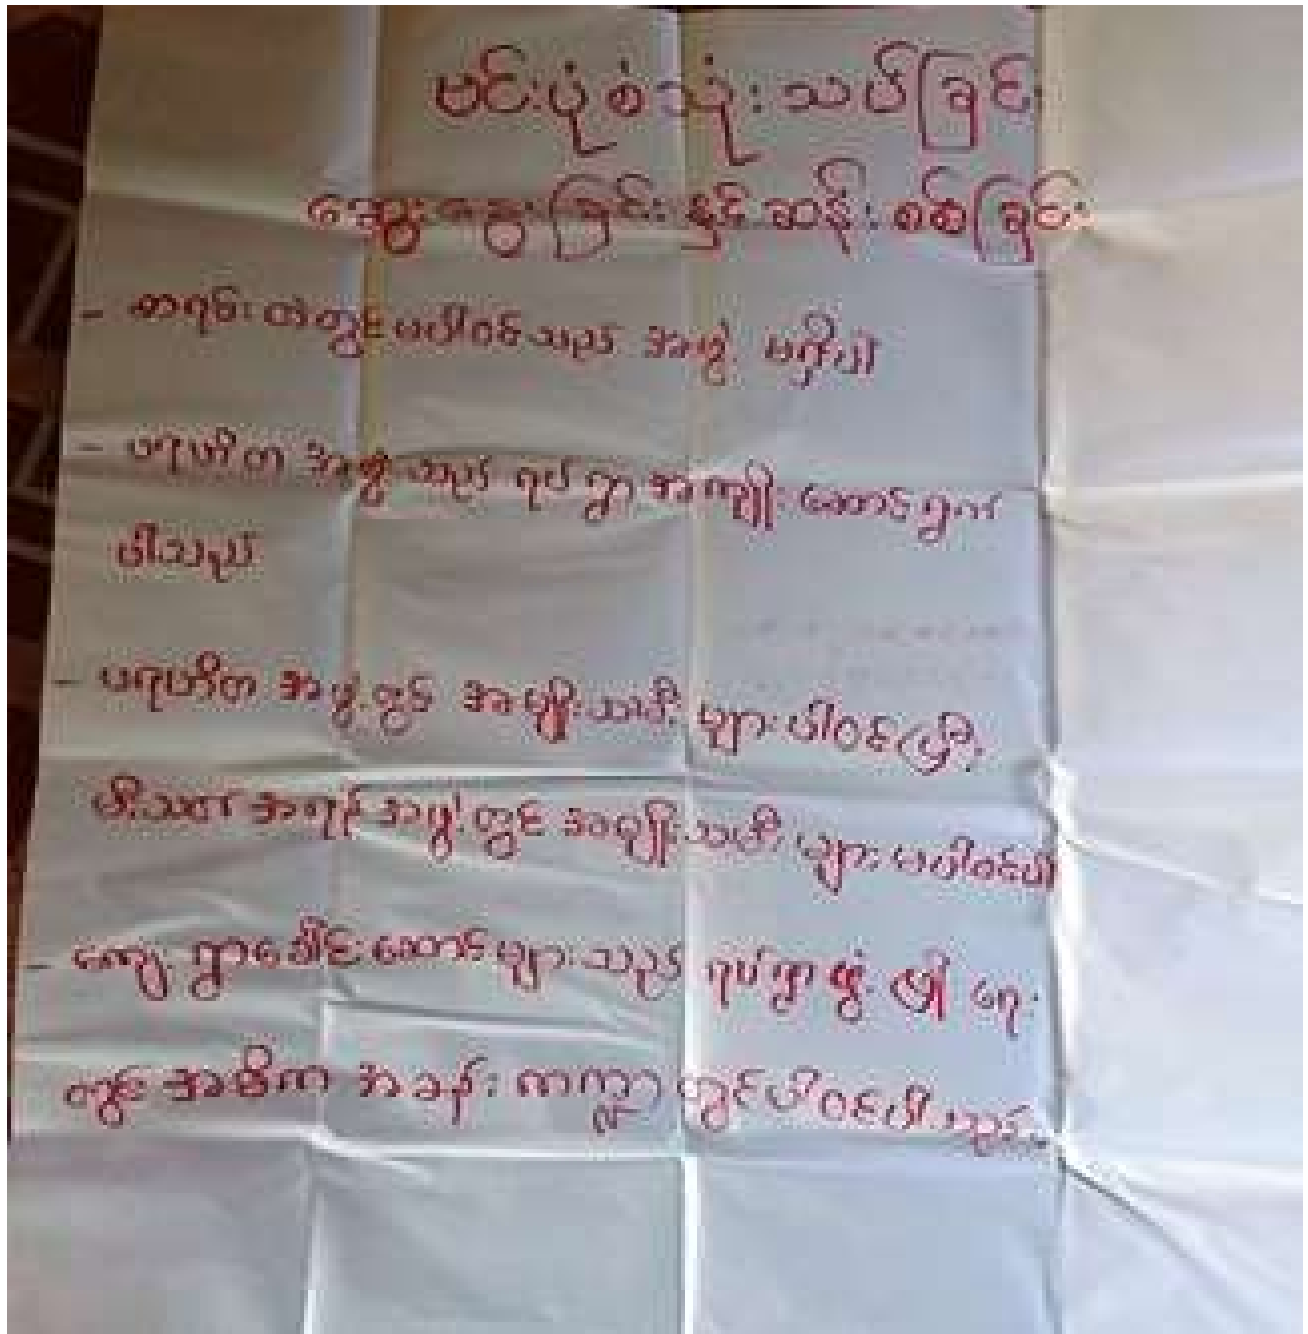 ဗင်းပုံစံသုံးသပ်ခြင်း
ဆွေးနွေးခြင်းနှင့်ဆန်းစစ်ခြင်း
- စာရင်းထဲတွင်မပါဝင်သည့် အဖွဲ့ မရှိပါ
- ပရဟိတ အဖွဲ့သည် ရပ်ရွာအကျိုးဆောင်ရွက်
ပါသည်
- ပရဟိတ အဖွဲ့တွင် အမျိုးသမီးများပါဝင်ပြီး
မီးသတ်အရန်အဖွဲ့တွင် အမျိုးသမီးများမပါဝင်ပါ
- ကျေးရွာခေါင်းဆောင်များသည် ရပ်ရွာဖွံ့ဖြိုးရေး
တွင် အဓိက အခန်းကဏ္ဍတွင်ပါဝင်ပါသည်။